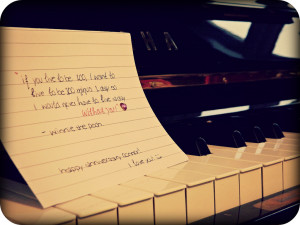 "if you live to be 100, i want to
live to be 100 minus 1 day so
i would never have to live a day
without you"
- winnie the pooh.
happy anniversary
i love you